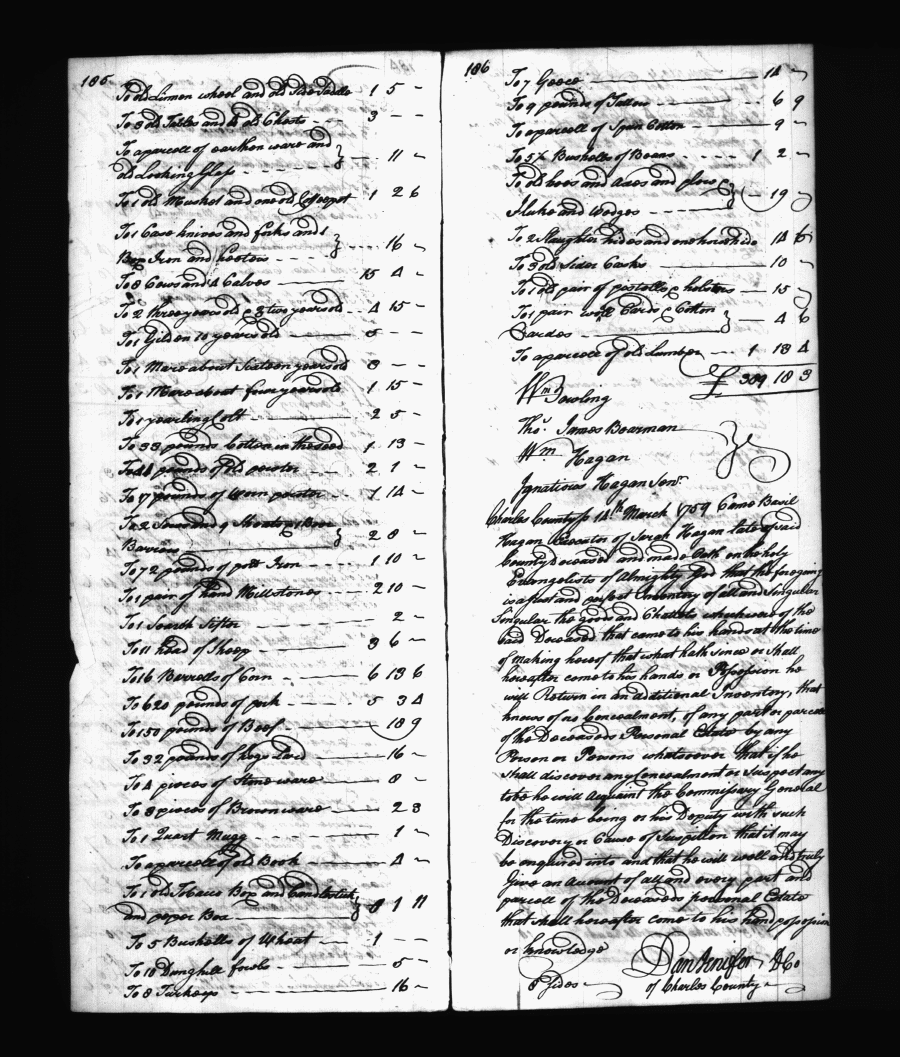 185
To old Linnen wheel and old Side Saddle 1 5 ~
To 3 old Tables and 4 old Chests 3 ~
To a parcell of earthen ware and
old Looking Glass 11 ~
To 1 old Musket and one old 1 2 6
To 1 Case knives and forks and 1
Box Iron and heaters 16 ~
To 8 Cows and 4 Calves 15 4 ~
To 2 three years old & 3 two years old 4 15 ~
To 1 Gilden 10 years old
To 1 Mare about Sixteen years old 3 ~
To 1 Mare about four years old 1 15 ~
To 1 yearling Colt 2 5 ~
To 33 pounds Cotton in the seed 1 13 ~
To 41 pounds of old pewter 2 1 ~
To 17 pounds of Worn pewter 1 14 ~
To 2 Sows and 9 Shoats & 1 Boar
Barrow 2 8 ~
To 72 pounds of pott Iron 1 10 ~
To 1 pair of hand Millstones 2 10 ~
To 1 Search Sifter 2 ~
To 11 head of Sheep 3 6 ~
To 16 Barrells of Corn 6 13 6
To 620 pounds of pork 5 3 4
To 150 pounds of Beef 18 9
To 32 pounds of hogs Lard 16 ~
To 4 pieces of Stone ware 8 ~
To 8 pieces of Brown ware 2 3
To 1 Quart Mugg 1 ~
To a parcell of old Book 4 ~
To 1 old Tobacco Box and Candlestick
and peper Box 1 11
To 5 Bushells of Wheat 1 ~ ~
To 10 Dunghill fowls 5 ~
To 8 Turkeys 16 ~
186
To 7 Geese 14 ~
To 9 pounds of Tallow 6 9
To a parcell of Spun Cotton 9 ~
To 5½ Bushells of Beans 1 2 ~
To old hoes and Axes and plow &
fluke and Wedges 19 ~
To 2 Slaughter hides and one horse hide 14 6
To 3 old Sider Casks 10 ~
To 1 old pair of pistolls & holsters 15 ~
To 1 pair wool Cards & Cotton
Cardes 4 6
To a parcell of old Lumber 1 13 4
£ 309 18 3
Wm Dowling
Thos. James Boarman
Wm Hagan
Ignatious Hagan Senr
Charles County ss 14th March 1759 Came Basil
Hagan Executor of Sarah Hagan Late of said
County Deceased and made Oath on the holy
Evangelists of Almighty God that the foregoing
is a just and perfect Inventory of all and Singular
Singular the goods and Chattels which were of the
said Deceased that came to his hands at the time
of making hereof that what hath since or Shall
hereafter come to his hands or Possession he
will Return in an additional Inventory, that
knows of no Concealment, of any part or parcell
of the Deceaseds Personal Estate by any
Person or Persons whatsoever that if he
Shall discover any Concealment or Suspect any
to be he will Acquaint the Commissary General
for the time being or his Deputy with such
Discovery or Cause of Suspition that it may
be enquired into and that he will well and truly
Give an Account of all and every part and
parcell of the Deceaseds personal Estate
that shall hereafter come to his hand possession
or knowledge Dan Jenifer D Co
8 Sides of Charles County